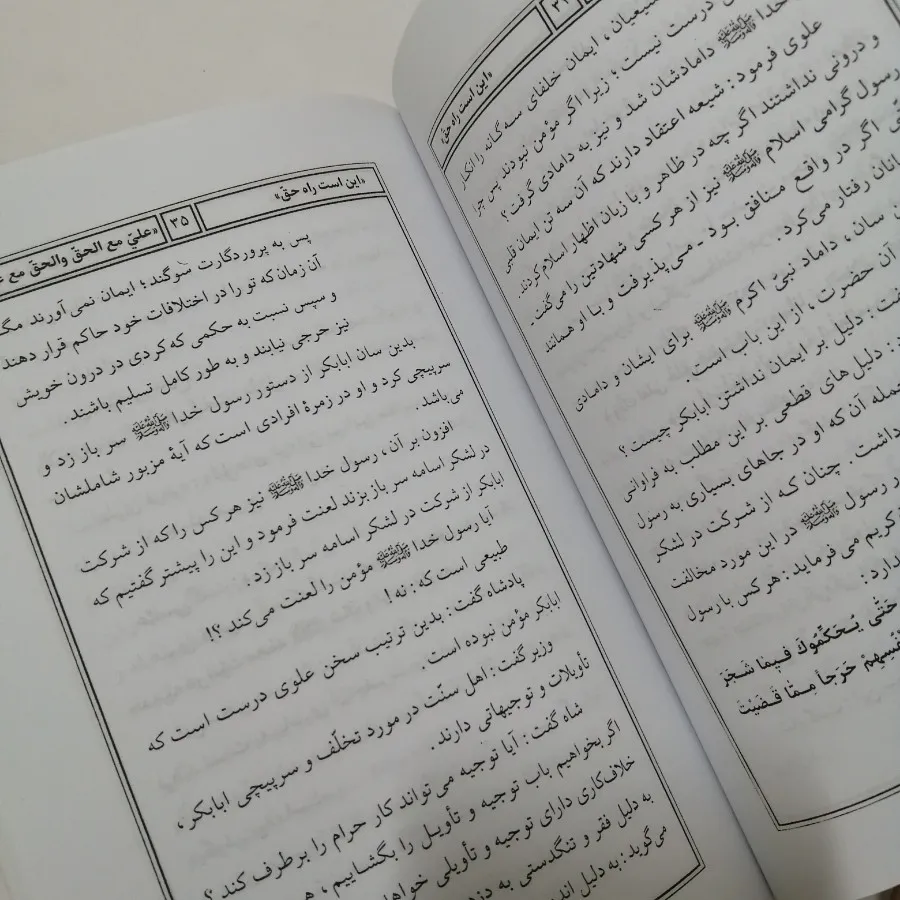 ۳۴
«این است راه حق»
شیعیان ، ایمان خلفای سه گانه را انکار
درست نیست ؛ زیرا اگر مؤمن نبودند پس چرا
خدا ﷺ دامادشان شد و نیز به دامادی گرفت ؟
علوی فرمود : شیعه اعتقاد دارند که آن سه تن ایمان قلبی
و درونی نداشتند اگر چه در ظاهر و با زبان اظهار اسلام کردند .
رسول گرامی اسلام ﷺ نیز از هر کسی شهادتین را می‌گفت -
اگر در واقع منافق بود - می‌پذیرفت و با او همانند
رفتار می‌کرد .
سان ، داماد نبیّ اکرم ﷺ برای ایشان و دامادی
آن حضرت ، از این باب است .
گفت : دلیل بر ایمان نداشتن ابابکر چیست ؟
دلیل های قطعی بر این مطلب به فراوانی
جمله آن که او در جاهای بسیاری به رسول
داشت . چنان که از شرکت در لشکر
رسول ﷺ در این مورد مخالفت
کریم می فرماید : هر کس با رسول
دارد :
حَتَّی یُحَکِّمُوكَ فیِمٰا شَجَرَ
أَنْفُسِهِمْ حَرَجاً مِمّٰا قَضَیْتَ
«این است راه حقّ»
۳۵
«علیّ مع الحقّ والحقّ مع
پس به پروردگارت سوگند ؛ ایمان نمی آورند مگر
آن زمان که تو را در اختلافات خود حاکم قرار دهند
و سپس نسبت به حکمی که کردی در درون خویش
نیز حرجی نیابند و به طور کامل تسلیم باشند .
بدین سان ابابکر از دستور رسول خدا ﷺ سر باز زد و
سرپیچی کرد و او در زمرهٔ افرادی است که آیهٔ مزبور شاملشان
می‌باشد .
افزون بر آن ، رسول خدا ﷺ نیز هر کس را که از شرکت
در لشکر اسامه سر باز بزند لعنت فرمود و این را پیشتر گفتیم که
ابابکر از شرکت در لشکر اسامه سر باز زد :
آیا رسول خدا ﷺ مؤمن را لعنت می‌کند ؟!
طبیعی است که : نه !
پادشاه گفت : بدین ترتیب سخن علوی درست است که
ابابکر مؤمن نبوده است .
وزیر گفت : اهل سنّت در مورد تخلّف و سرپیچی ابابکر ،
تأویلات و توجیهاتی دارند .
شاه گفت : آیا توجیه می تواند کار حرام را برطرف کند ؟
اگر بخواهیم باب توجیه و تأویل را بگشاییم ،
خلاف‌کاری دارای توجیه و تأویلی
به دلیل فقر و تنگدستی به
می‌گرید : به دلیل